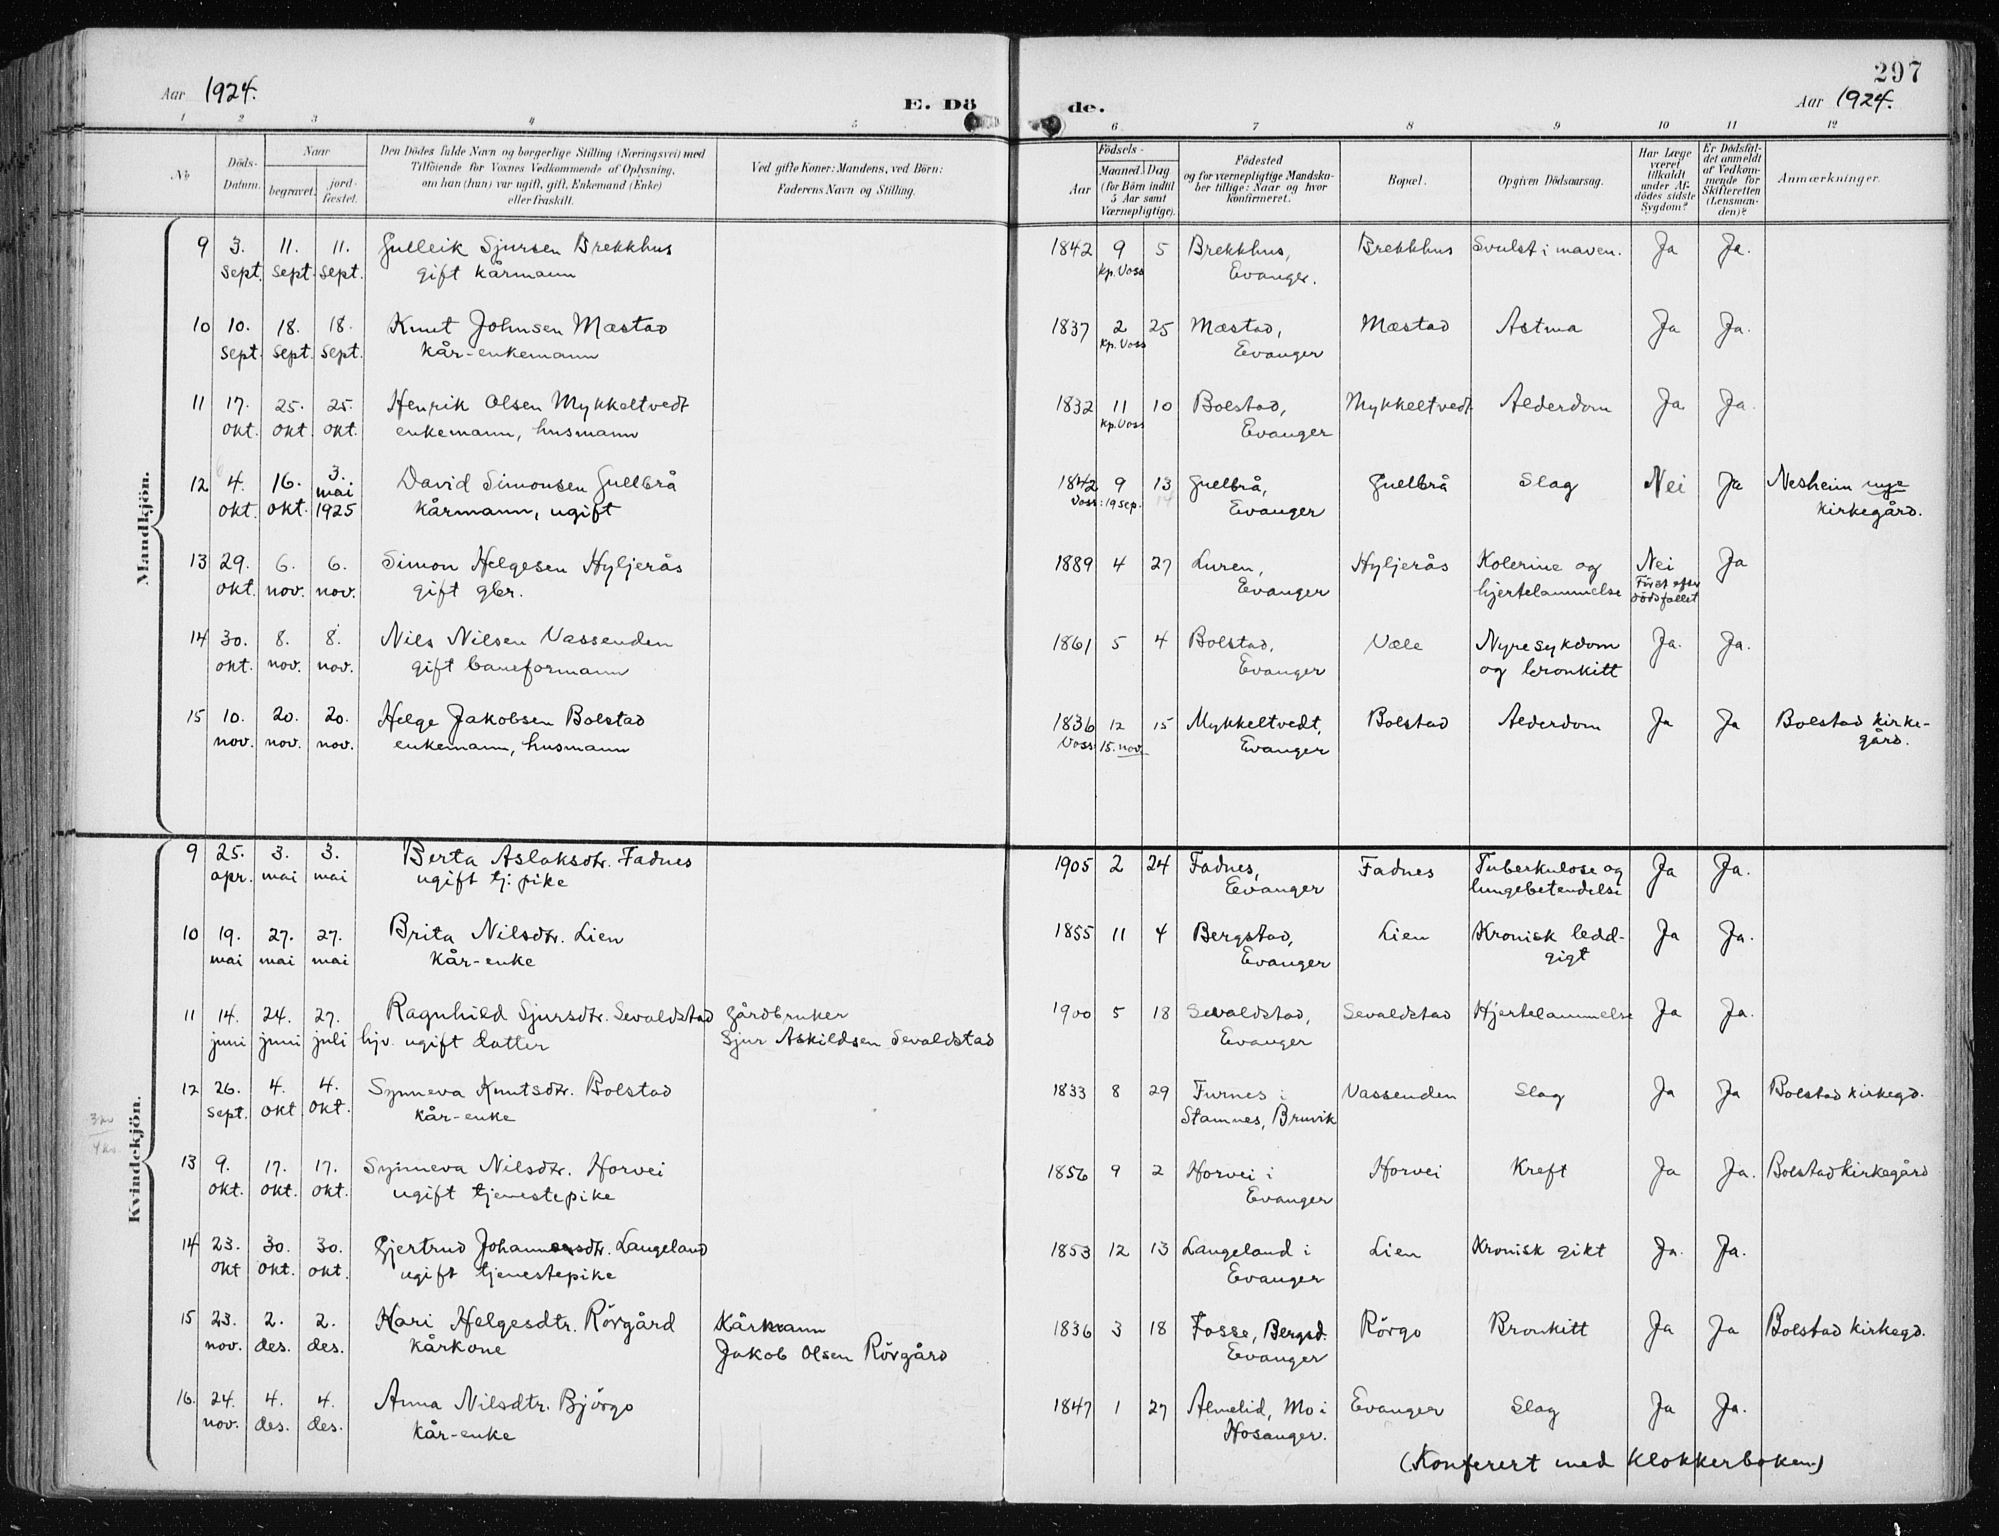 297
Aar 1924.
E. Dö de.
Aar 1924.
1 2 3 4 5 6 7 8 9 10 11 12
No
Döds-Datum.
Naar
begravet.
jord-fæstet.
Den Dödes fulde Navn og borgerlige Stilling (Næringsvei) med
Tilföiende for Voxnes Vedkommende af Oplysning,
om han (hun) var ugift, gift, Enkemand (Enke)
eller fraskilt.
Ved gifte Koner: Mandens, ved Börn:
Faderens Navn og Stilling.
Födsels-
Aar
Maaned. Dag
(for Börn indtil
5 Aar samt
Værnepligtige).
Födested
og for værnepligtige Mandska-
ber tillige: Naar og hvor
konfirmeret.
Bopæl.
Opgiven Dödsaarsag.
Har Læge
været
tilkaldt
under Af-
dödes sidste
Sygdom?
Er Dödsfal-
det anmeldt
af Vedkom-
mende for
Skifteretten
(Lensman-
den)?
Anmærkninger.
Mandkjön.
9 3. 11. 11. Gulleik Sjursen Brekkhus 1842 9 5 Brekkhus, Brekkhus Svulst i maven. Ja Ja.
sept. sept. sept. gift kårmann kp. Voss Evanger.
10 10. 18. 18. Knut Johnsen Mæstad 1837 2 25 Mæstad, Mæstad Astma Ja Ja.
sept. sept. sept. kår-enkemann kp. Voss Evanger
11 17. 25. 25. Henrik Olsen Mykkeltvedt 1832 11 10 Bolstad, Mykkeltvedt Alderdom Ja. Ja.
okt. okt. okt. enkemann, husmann kp. Voss Evanger
12 4. 16. 3. David Simonsen Gullbrå 1842 9 13 Gullbrå, Gullbrå Slag Nei Ja Nesheim nye
okt. okt. mai 1925 kårmann, ugift Voss: 19 sep. 14 Evanger kirkegård.
13 29. 6. 6. Simon Helgesen Hyljerås 1889 4 27 Luren, Hyljerås Kolerine og Nei Ja
okt. nov. nov. gift gbr. Evanger hjertelammelse Först efter
dödsfallet
14 30. 8. 8. Nils Nilsen Vassenden 1861 5 4 Bolstad, Væle Nyresykdom Ja. Ja.
okt. nov. nov. gift baneformann Evanger og bronkitt
15 10. 20. 20. Helge Jakobsen Bolstad 1836 12 15 Mykkeltvedt, Bolstad Alderdom Ja Ja Bolstad kirke-
nov. nov. nov. enkemann, husmann Voss 15. nov. Evanger gård.
Kvindekjön.
9 25. 3. 3. Berta Aslaksdtr. Fadnes 1905 2 24 Fadnes, Fadnes Tuberkulose og Ja Ja.
apr. mai mai ugift tj. pike Evanger lungebetendelse
10 19. 27. 27. Brita Nilsdtr. Lien 1855 11 4 Bergstad, Lien Kronisk ledd- Ja Ja.
mai mai mai kår-enke Evanger gigt
11 14. 24. 27. Ragnhild Sjursdtr. Sevaldstad Gårdbruker 1900 5 18 Sevaldstad, Sevaldstad Hjertelammelse Ja Ja.
juni juni juli hjv. ugift datter Sjur Askildsen Sevaldstad Evanger
12 26. 4. 4. Synneva Knutsdtr. Bolstad 1833 8 29 Furnes i Vassenden Slag Ja Ja Bolstad kirkegd.
sept. okt okt. kår-enke Stamnes, Bruvik
13 9. 17. 17. Synneva Nilsdtr. Horvei 1856 9 2 Horvei i Horvei Kreft Ja Ja. Bolstad kirkegård
okt. okt. okt. ugift tjenestepike Evanger
14 23. 30. 30. Gjertrud Johannesdtr. Langeland 1853 12 13 Langeland i Lien Kronisk gikt Ja. Ja.
okt okt. okt. ugift tjenestepike Evanger
15 23. 2. 2. Kari Helgesdtr. Rövgård Kårmann 1836 3 18 Fosse, Bergsd. Rövgo Bronkitt Ja Ja Bolstad kirkegd.
nov. des. des. kårkone Jakob Olsen Rövgård Evanger
16. 24. 4. 4. Anna Nilsdtr. Björgo 1847 1 27 Almelid, Mo i Evanger Slag Ja Ja.
nov. des. des. kår-enke Hosanger.
(Konferert med klokkerboken.)